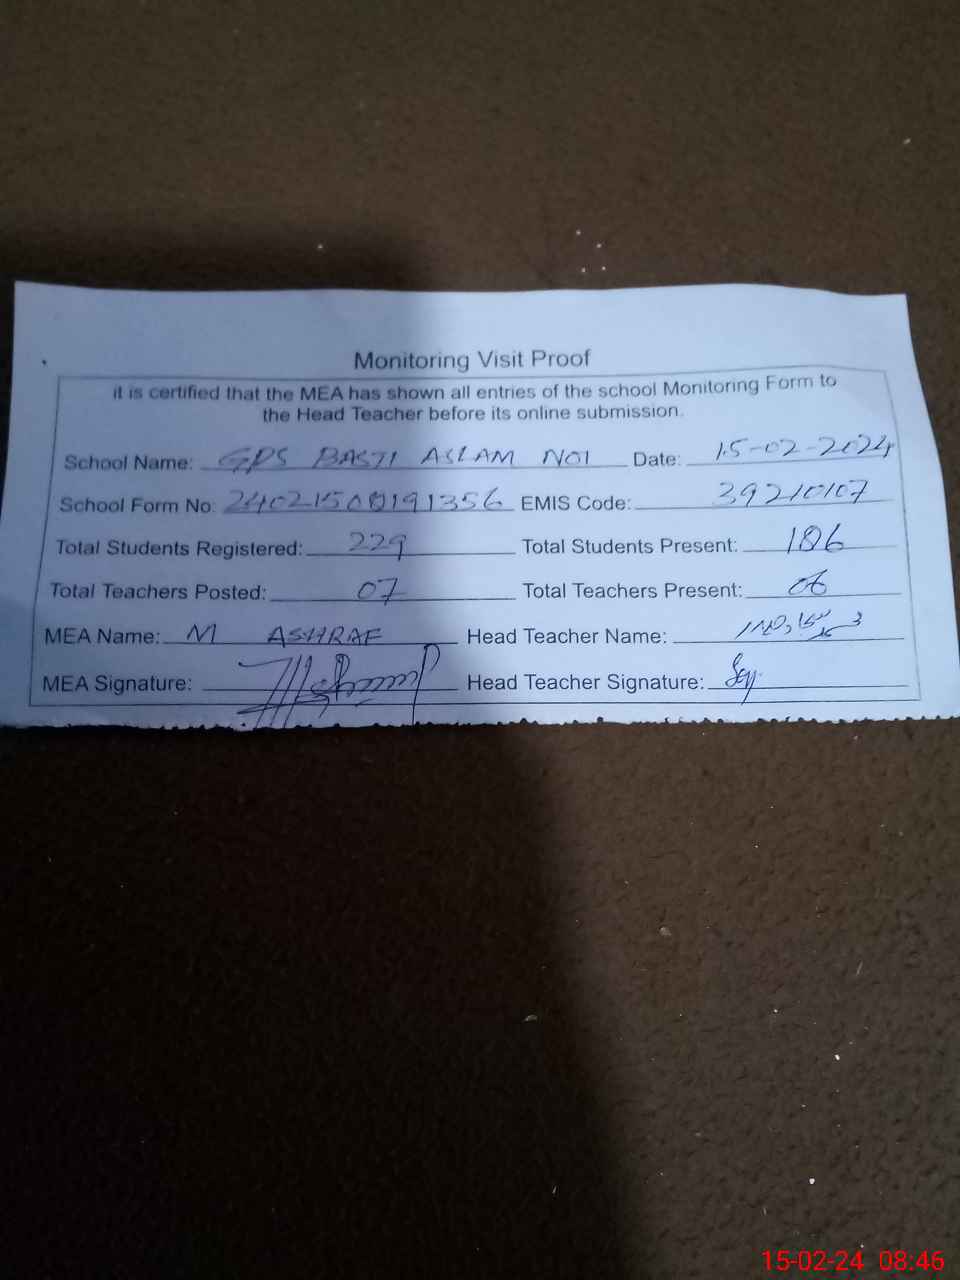 Monitoring Visit Proof
it is certified that the MEA has shown all entries of the school Monitoring Form to
the Head Teacher before its online submission.
School Name: GPS BASTI ASLAM NO1 Date: 15-02-2024
School Form No: 240215080191356 EMIS Code: 39210107
Total Students Registered: 229 Total Students Present: 186
Total Teachers Posted: 07 Total Teachers Present: 06
MEA Name: M ASHRAF Head Teacher Name:
MEA Signature: Head Teacher Signature:
15-02-24 08:46